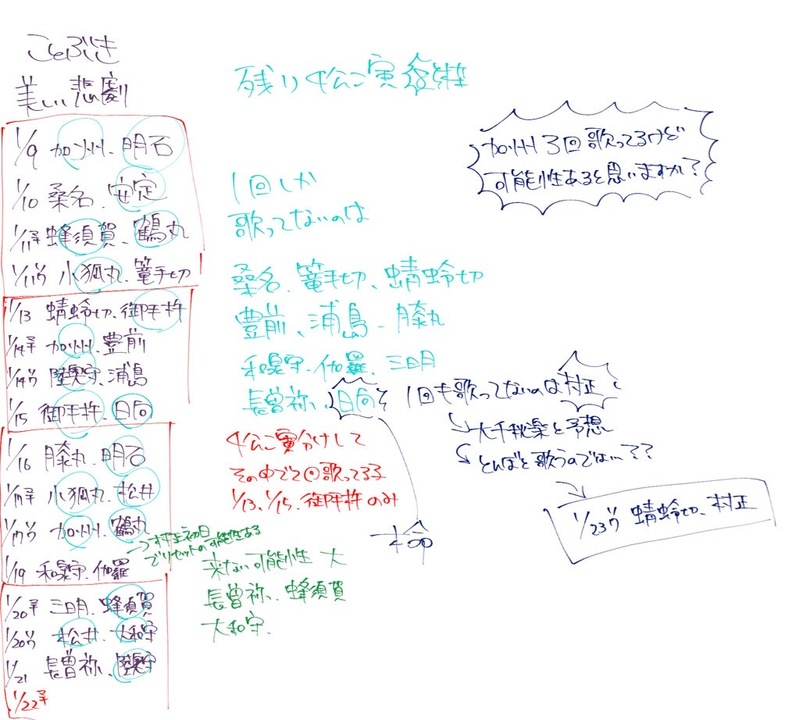 ことぶき
美しい悲劇
1/9 加州、明石
1/10 桑名、安定
1/11ヲ 蜂須賀、鶴丸
1/11ソワ 小狐丸、篭手切
1/13 蜻蛉切、御手杵
1/14ヲ 加州、豊前
1/14ソワ 陸奥守、浦島
1/15 御手杵、日向
1/16 膝丸、明石
1/17ヲ 小狐丸、松井
1/17ソワ 加州、鶴丸
1/19 和泉守、伽羅
1/20ヲ 三日月、蜂須賀
1/20ソワ 松井、大和守
1/21 長曽祢、陸奥守
1/22ヲ
残り4公演
1回しか
歌ってないのは
桑名、篭手切、蜻蛉切
豊前、浦島、膝丸
和泉守、伽羅、三日月
長曽祢、日向
4公演分けして
その中で2回歌ってる
1/13、1/15、御手杵のみ
村正初日
でリセットの可能性ある
来ない可能性 大
長曽祢、蜂須賀
大和守、
加州3回歌ってるけど
可能性あると思いますか?
1回も歌ってないのは村正
大千秋楽と予想
とんぼと歌うのでは??
1/23ソワ 蜻蛉切、村正
本命